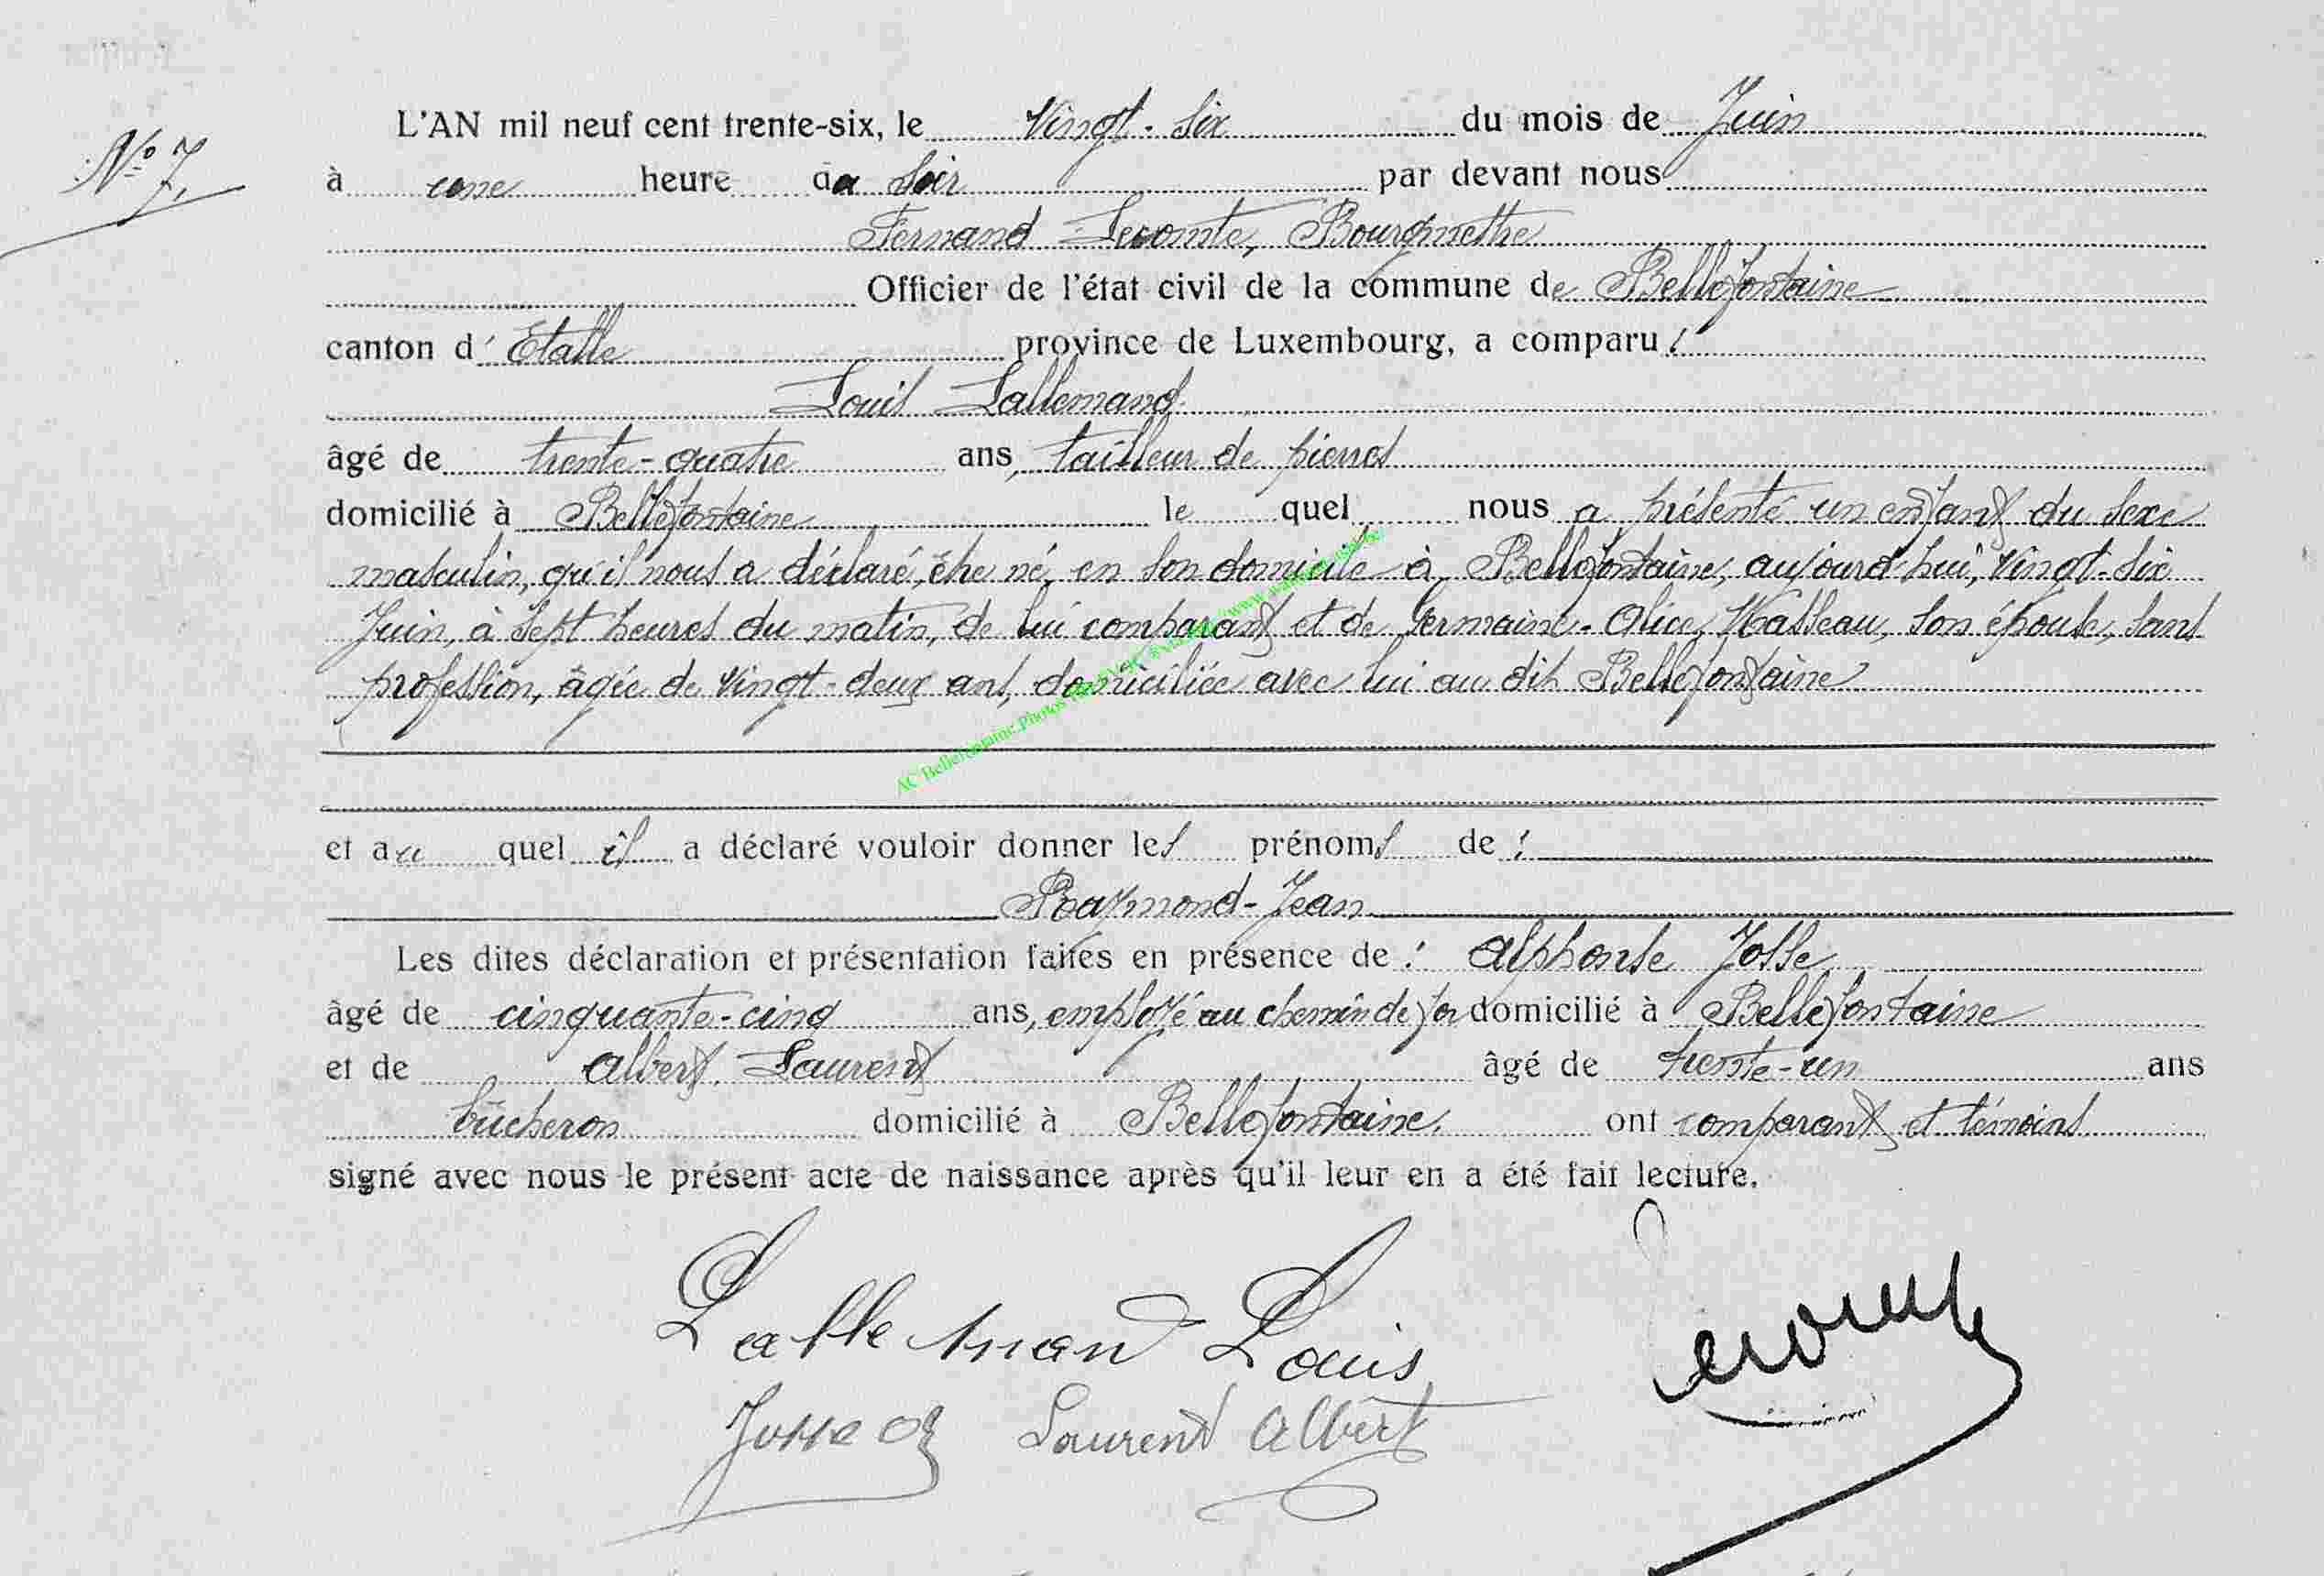 L'AN mil neuf cent trente-six, le Vingt-six du mois de Juin
N° 7.
à une heure du soir par devant nous
Fernand Lecomte, Bourgmettre
Officier de l'état civil de la commune de Bellefontaine
canton d' Etalle province de Luxembourg, a comparu :
Louis Lallemand
âgé de trente-quatre ans, tailleur de pierres
domicilié à Bellefontaine le quel nous a présenté un enfant du sexe
masculin, qu'il nous a déclaré, être né, en son domicile à Bellefontaine, aujourd'hui, vingt-six
Juin, à sept heures du matin, de lui comparant et de Germaine-Alice, Wasseau, son épouse, sans
profession, âgée de vingt-deux ans, domiciliée avec lui au dit Bellefontaine
AC Bellefontaine, Photos
et au quel il a déclaré vouloir donner les prénoms de :
Raymond-Jean
Les dites déclaration et présentation faites en présence de : Alphonse Josse
âgé de cinquante-cinq ans, employé au chemin de fer domicilié à Bellefontaine
et de Albert Laurent âgé de trente-un ans
bûcheron domicilié à Bellefontaine. ont comparant et témoins
signé avec nous le présent acte de naissance après qu'il leur en a été fait lecture.
Lallemand Louis
Josse A Laurent Albert
Lecomte